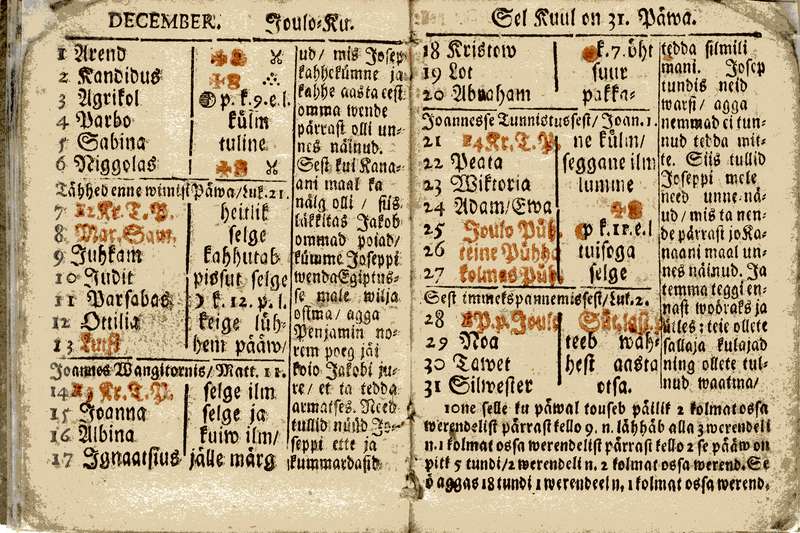 DECEMBER. Joulo-Ku.
1 Arend
2 Kandidus
3 Agrikol p. k. 9. e. l.
4 Parbo külm
5 Sabina tuline
6 Niggolas
Tähhed enne wimist Päwa/Luk. 21.
7 12 Kr. T. P. heitlik
8 Mar. Sam. selge
9 Juhkam kahhutab
10 Judit pissut selge
11 Parsabas k. 12. p. l.
12 Ottilia keige lüh-
13 hem pääw/
Joannes Wangitornis/Matt. 11.
14 13 Kr. T. P. selge ilm
15 Joanna selge ja
16 Albina kuiw ilm/
17 Ignaatsius jälle märg
ud/ mis Josep
kahhekümne ja
kahhe aasta eest
omma wende
pärrast olli un-
nes näinud.
Sest kui Kana-
ani maal ka
nälg olli / siis
läkkitas Jakob
ommad poiad/
kümme Joseppi
wenda Egiptus-
se male wilja
ostma/ agga
Penjamin no-
rem poeg jäi
koio Jakobi ju-
re/ et ta tedda
armatses. Need
tullid nüüd Jo-
seppi ette ja
kummardasid
Sel Kuul on 31. Päwa.
18 Kristow k. 7. öht
19 Lot suur
20 Abraham pakka-
Joannesse Tunnistussest/Joan. 1.
21 14 Kr. T. P. ne külm/
22 Peata seggane ilm
23 Wiktoria lumme
24 Adam/Ewa
25 Joulo Püh. p k. 11. e. l
26 teine Pühha tuisoga
27 kolmas Püh. selge
Sest immekspannemissest/Luk. 2.
28 P. p. Joulo
29 Noa teeb wah-
30 Tawet hest aasta
31 Silwester otsa.
tedda silmili
mani. Josep
tundis neid
warsi/ agga
nemmad ei tun-
nud tedda mit-
te. Siis tullid
Joseppi mele
need unne-nä-
ud/ mis ta nen-
de pärrast jo Ka-
naani maal un-
nes näinud. Ja
temma teggi en-
nast wööraks ja
ütles: teie ollete
sallaja kulajad
ning ollete tul-
nud waatma/
10ne selle ku päwal touseb päilik 2 kolmat ossa
werendelist pärrast kello 9. n. lähhäb alla 3 werendeli
n. 1 kolmat ossa werendelist pärrast kello 2 se pääw on
pitk 5 tundi/2 werendeli n. 2 kolmat ossa werend. Se
ö aggas 18 tundi 1 werendeel n. 1 kolmat ossa werend.